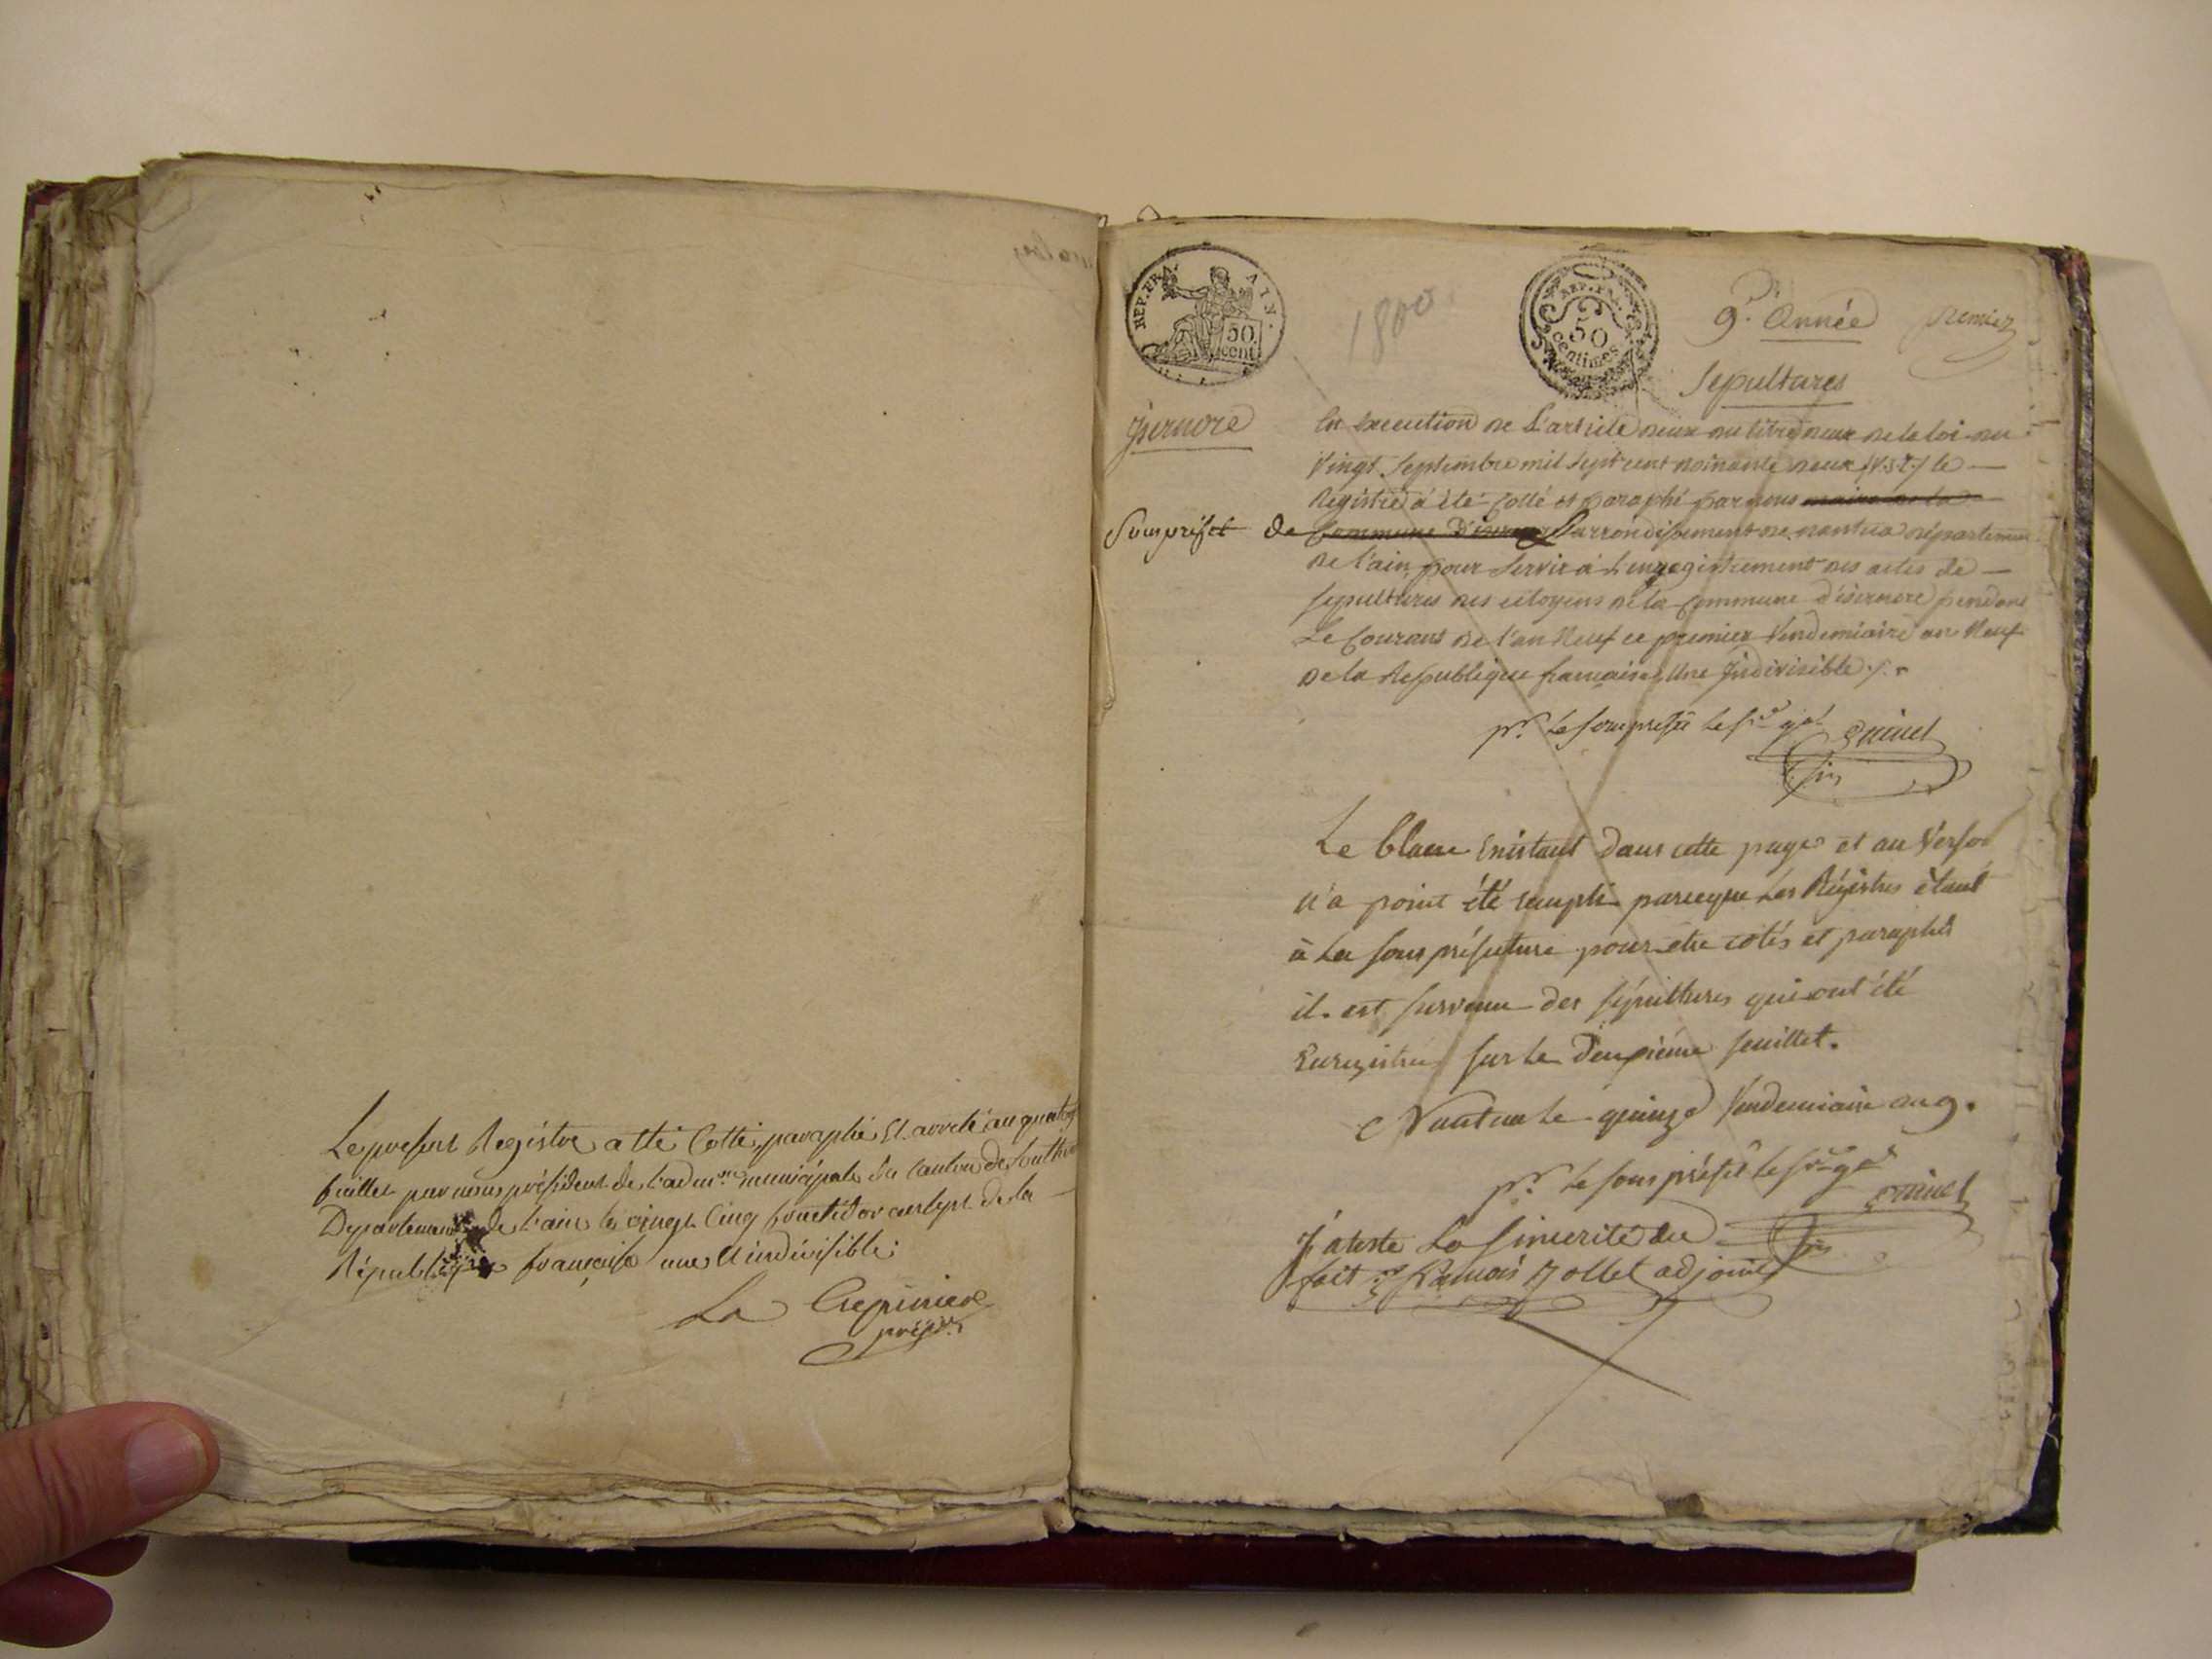 Le present Registre a été Cotté, paraphé, Et arreté au quatre
feuillet par nous président de l'adm.on municipale du canton de Sonthon
Departement de l'ain le vingt Cinq fructidor an sept de la —
République française une et indivisible.
La Crepiniere
présid.
REP. FRA. AIN.
50 cent
1800
REP. FRA.
50 centimes
9.e année
premier
Sepultures
Isernore
En execution de L'article deux du titre deux de la loi du
Vingt Septembre mil Sept cent noinante deux /v.s.t./ le —
Registre a été Cotté et paraphé par nous maire de la
Souspréfet de Commune D'isernore L'arrondissement de nantua département
de l'ain, pour Servir à L'enregistrement des actes de —
sepultures des citoyens de la Commune d'isernore pendant
Le Courant de l'an Neuf ce premier Vendemiaire an Neuf
De la Republique francaise, Une Indivisible /.
p.r Le souspréfet le S.re g.al
Le blanc Existant dans cette page et au Verso
n'a point été rempli parceque Les Régistres étant
à La sous préfecture pour être cotés et paraphés
il est survenu des sépultures qui ont été
Enregistrées sur le Deuxième feuillet.
Nantua le quinze Vendemiaire an 9.
p.r Le sous préfet le S.re g.al
J'ateste La Sincerité du
fait françois Jollet adjoint